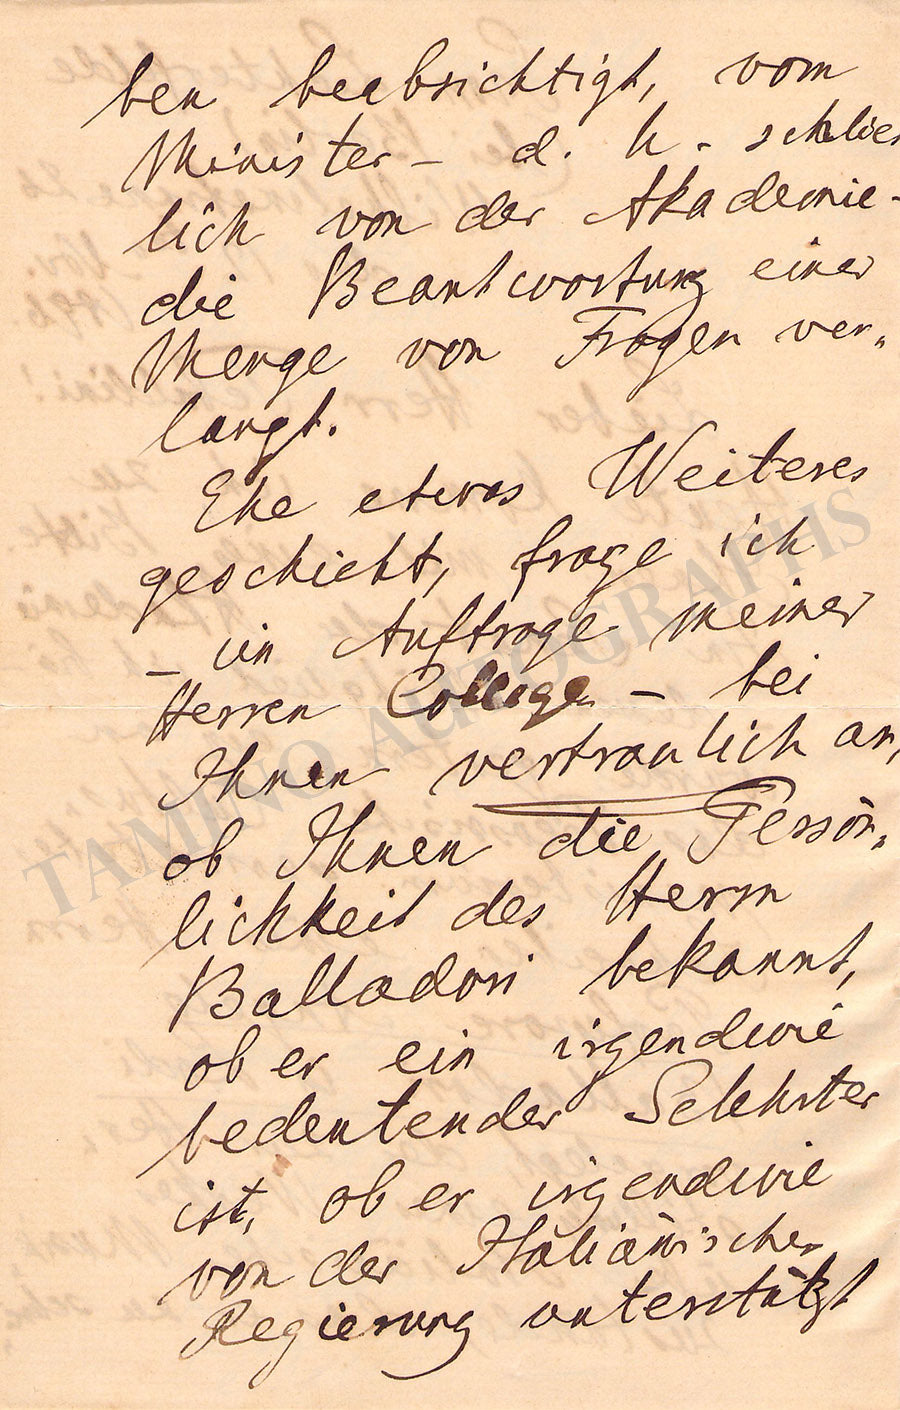 ben beabsichtigt, vom
Minister – d. h. schlies
lich von der Akademie –
die Beantwortung einer
Menge von Fragen ver„
langt.
Ehe etwas Weiteres
geschieht, frage ich
– im Auftrage meiner
Herren College – bei
Ihnen vertraulich an,
ob Ihnen die Persön„
lichkeit des Herrn
Balladori bekannt,
ob er ein irgendwie
bedeutender
ist, ob er irgendwie
von der Italiänischen
Regierung unterstützt
TAMINO AUTOGRAPHS